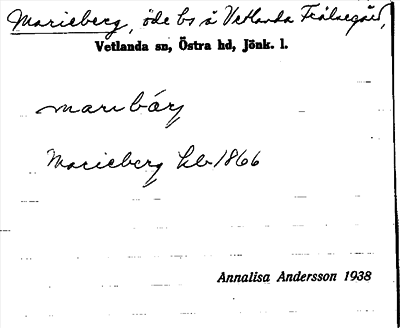 Marieberg, öde bs å Vetlanda Frälsegård,
Vetlanda sn, Östra hd, Jönk. l.
maribärj
Marieberg hlr 1866
Annalisa Andersson 1938